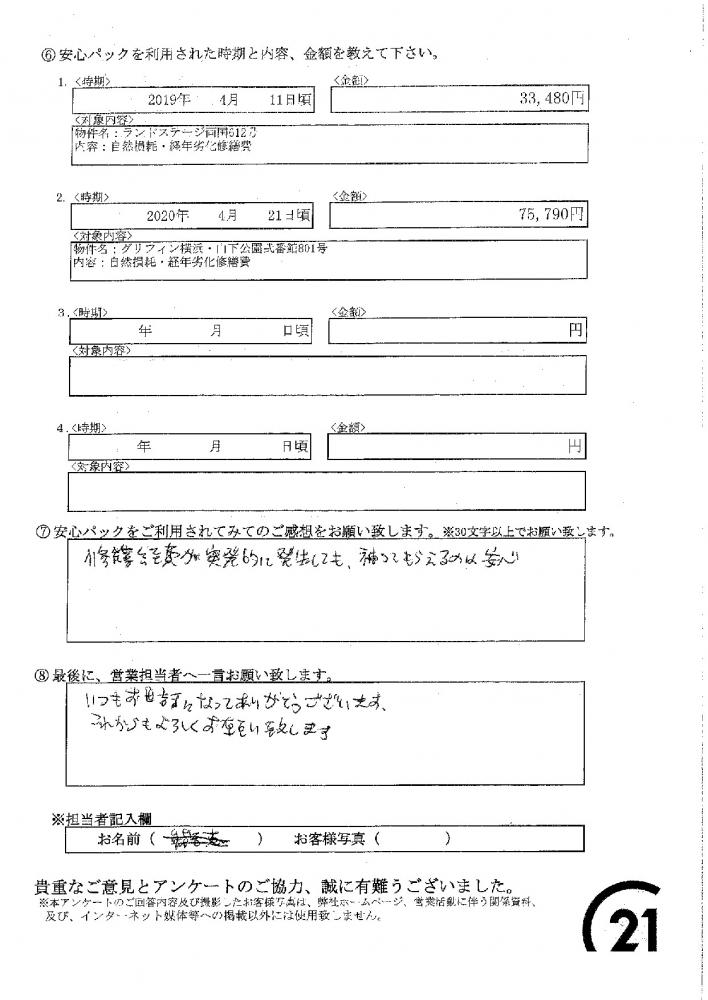 ⑥安心パックを利用された時期と内容、金額を教えて下さい。
1. <時期> <金額>
2019年 4月 11日頃 33,480円
<対象内容>
物件名：ランドステージ両国612号
内容：自然損耗・経年劣化修繕費
2. <時期> <金額>
2020年 4月 21日頃 75,790円
<対象内容>
物件名：グリフィン横浜・山下公園弐番館801号
内容：自然損耗・経年劣化修繕費
3. <時期> <金額>
年 月 日頃 円
<対象内容>
4. <時期> <金額>
年 月 日頃 円
<対象内容>
⑦安心パックをご利用されてみてのご感想をお願い致します。※30文字以上でお願い致します。
修繕経費が突発的に発生しても、補ってもらえるのは安心
⑧最後に、営業担当者へ一言お願い致します。
いつもお世話になってありがとうございます、
これからもよろしくお願い致します
※担当者記入欄
お名前（ ） お客様写真（ ）
貴重なご意見とアンケートのご協力、誠に有難うございました。
※本アンケートのご回答内容及び撮影したお客様写真は、弊社ホームページ、営業活動に伴う関係資料、
及び、インターネット媒体等への掲載以外には使用致しません。
21